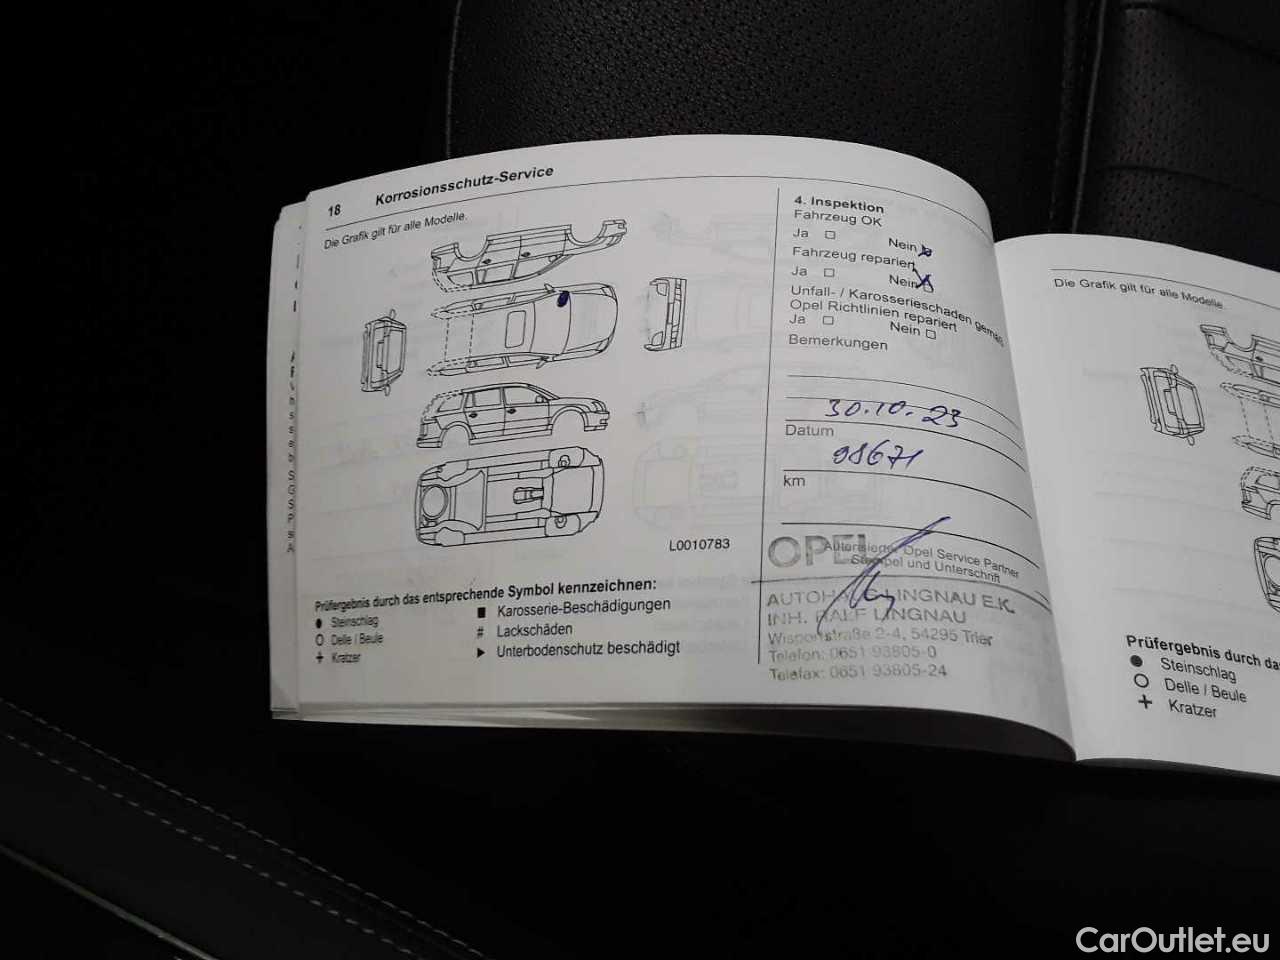 18
Korrosionsschutz-Service
Die Grafik gilt für alle Modelle.
L0010783
Prüfergebnis durch das entsprechende Symbol kennzeichnen:
● Steinschlag
○ Delle / Beule
+ Kratzer
■ Karosserie-Beschädigungen
# Lackschäden
▶ Unterbodenschutz beschädigt
4. Inspektion
Fahrzeug OK
Ja □ Nein
Fahrzeug repariert
Ja □ Nein
Unfall- / Karosserieschaden gemäß
Opel Richtlinien repariert
Ja □ Nein □
Bemerkungen
30.10.23
Datum
98671
km
OPEL
Autorisierter Opel Service Partner
Stempel und Unterschrift
AUTOHAUS LINGNAU E.K.
INH. RALF LINGNAU
Wisportstraße 2-4, 54295 Trier
Telefon: 0651 93805-0
Telefax: 0651 93805-24
Die Grafik gilt für alle Modelle.
Prüfergebnis durch das
● Steinschlag
○ Delle / Beule
+ Kratzer
CarOutlet.eu